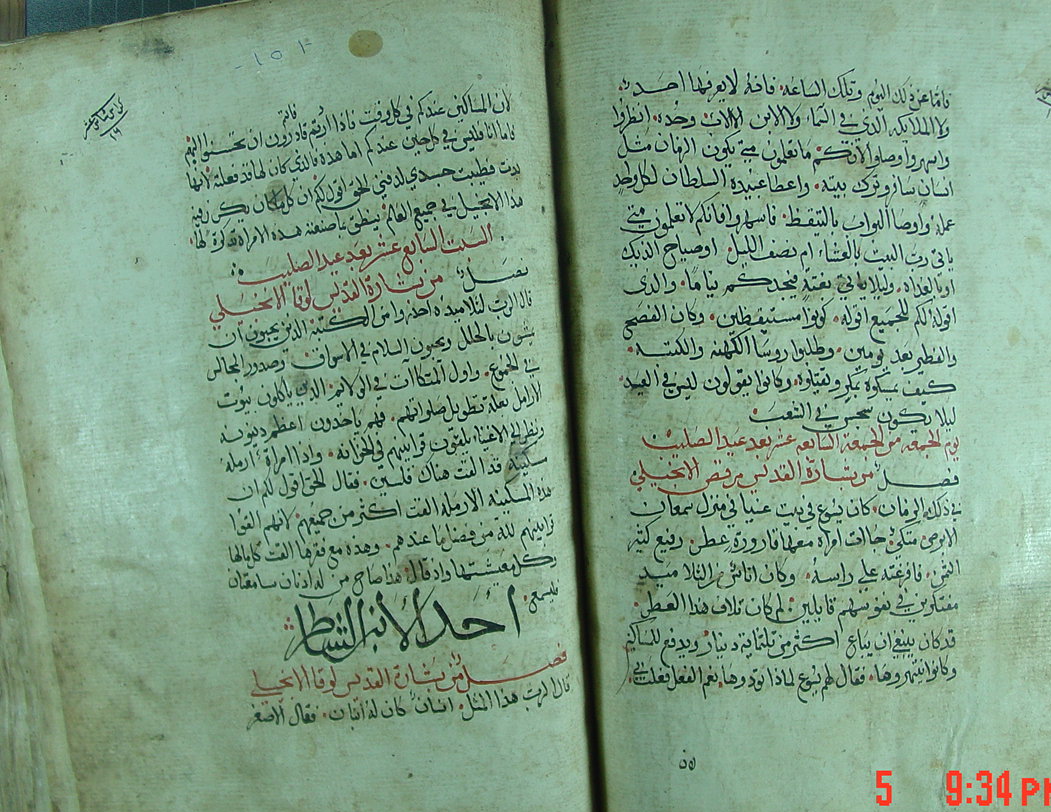 فاما عن ذلك اليوم وتلك الساعة فانه لا يعرفها احد
ولا الملايكه الذي في السما ولا الابن الا الاب وحده انظروا
واسهروا وصلوا لانكم ما تعلمون متى يكون الزمان مثل
انسان سافر وترك بيته واعطا عبيده السلطان لكل واحد
عمله واوصا البواب بالتيقظ فاسهروا فانكم لا تعلمون متى
ياتي رب البيت بالعشاء ام نصف الليل او صياح الديك
او بالغداه وليلا ياتي بغتة فيجدكم نياما والذي
اقوله لكم للجميع اقوله كونوا مستيقظين وكان الفصح
والفطير بعد يومين وطلبوا روسا الكهنه والكتبه
كيف يمسكوه بمكر ويقتلوه وكانوا يقولون ليس في العيد
ليلا يكون سجس في الشعب
يوم الجمعه من الجمعة السابعه عشر بعد عيد الصليب
فصل من بشارة القديس مرقص الانجيلي
في ذلك الزمان كان يسوع في بيت عنيا في منزل سمعان
الابرص متكي جاات امراه معها قارورة عطر رفيع كثير
الثمن فافرغته على راسه وكان اناس من التلاميد
مفتكرين في نفوسهم قايلين لم كان تلاف هذا العطر
قد كان ينبغي ان يباع اكثر من تلتماية دينار ويدفع للمساكين
وكانوا ينتهروها فقال لهم يسوع لماذا تودوها نعم الفعل فعلت بي
٥٥
١٥١
لان المساكين عندكم في كل وقت فاذا اردتم قادرون ان تحسنوا اليهم
فاما انا فليس في كل حين عندكم اما هذه فالذي كان لها قد فعلته لانها
بدت فطيبت جسدي لدفني الحق اقول لكم ان كل مكان يكرز فيه
هذا الانجيل في جميع العالم ينطق بما صنعته هذه الامراه تذكرة لها
السبت السابع عشر بعد عيد الصليب
فصل من بشارة القديس لوقا الانجيلي
قال الرب لتلاميذه احذروا من الكتبة الذين يحبون ان
يمشون بالحلل ويحبون السلام في الاسواق وصدور المجالس
في الجموع واول المتكاات في الولايم الذين ياكلون بيوت
الارامل بعلة تطويل صلواتهم فهم ياخدون اعظم دينونه
ونظر الى الاغنيا يلقون قرابينهم في الخزانه واذا امراة ارمله
مسكينه قد القت هناك فلسين فقال الحق اقول لكم ان
هذه المسكينة الارمله القت اكثر من جميعهم لانهم القوا
قرابينهم لله من فضل ما عندهم وهذه مع فقرها القت كلما لها
وكل معيشتها واد قال هذا صاح من له ادنان سامعتان
فليسمع
احد الابن الشاطر
فصل من بشارة القديس لوقا الانجيلي
قال الرب هذا المثل انسان كان له ابنان فقال الاصغر
5 9:34 PM